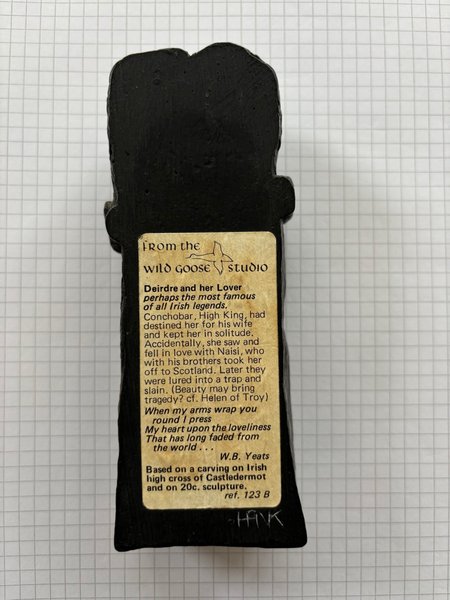 FROM the
WILD GOOSE STUDIO
Deirdre and her Lover
perhaps the most famous
of all Irish legends.
Conchobar, High King, had
destined her for his wife
and kept her in solitude.
Accidentally, she saw and
fell in love with Naisi, who
with his brothers took her
off to Scotland. Later they
were lured into a trap and
slain. (Beauty may bring
tragedy? cf. Helen of Troy)
When my arms wrap you
round I press
My heart upon the loveliness
That has long faded from
the world . . .
W.B. Yeats
Based on a carving on Irish
high cross of Castledermot
and on 20c. sculpture.
ref. 123 B